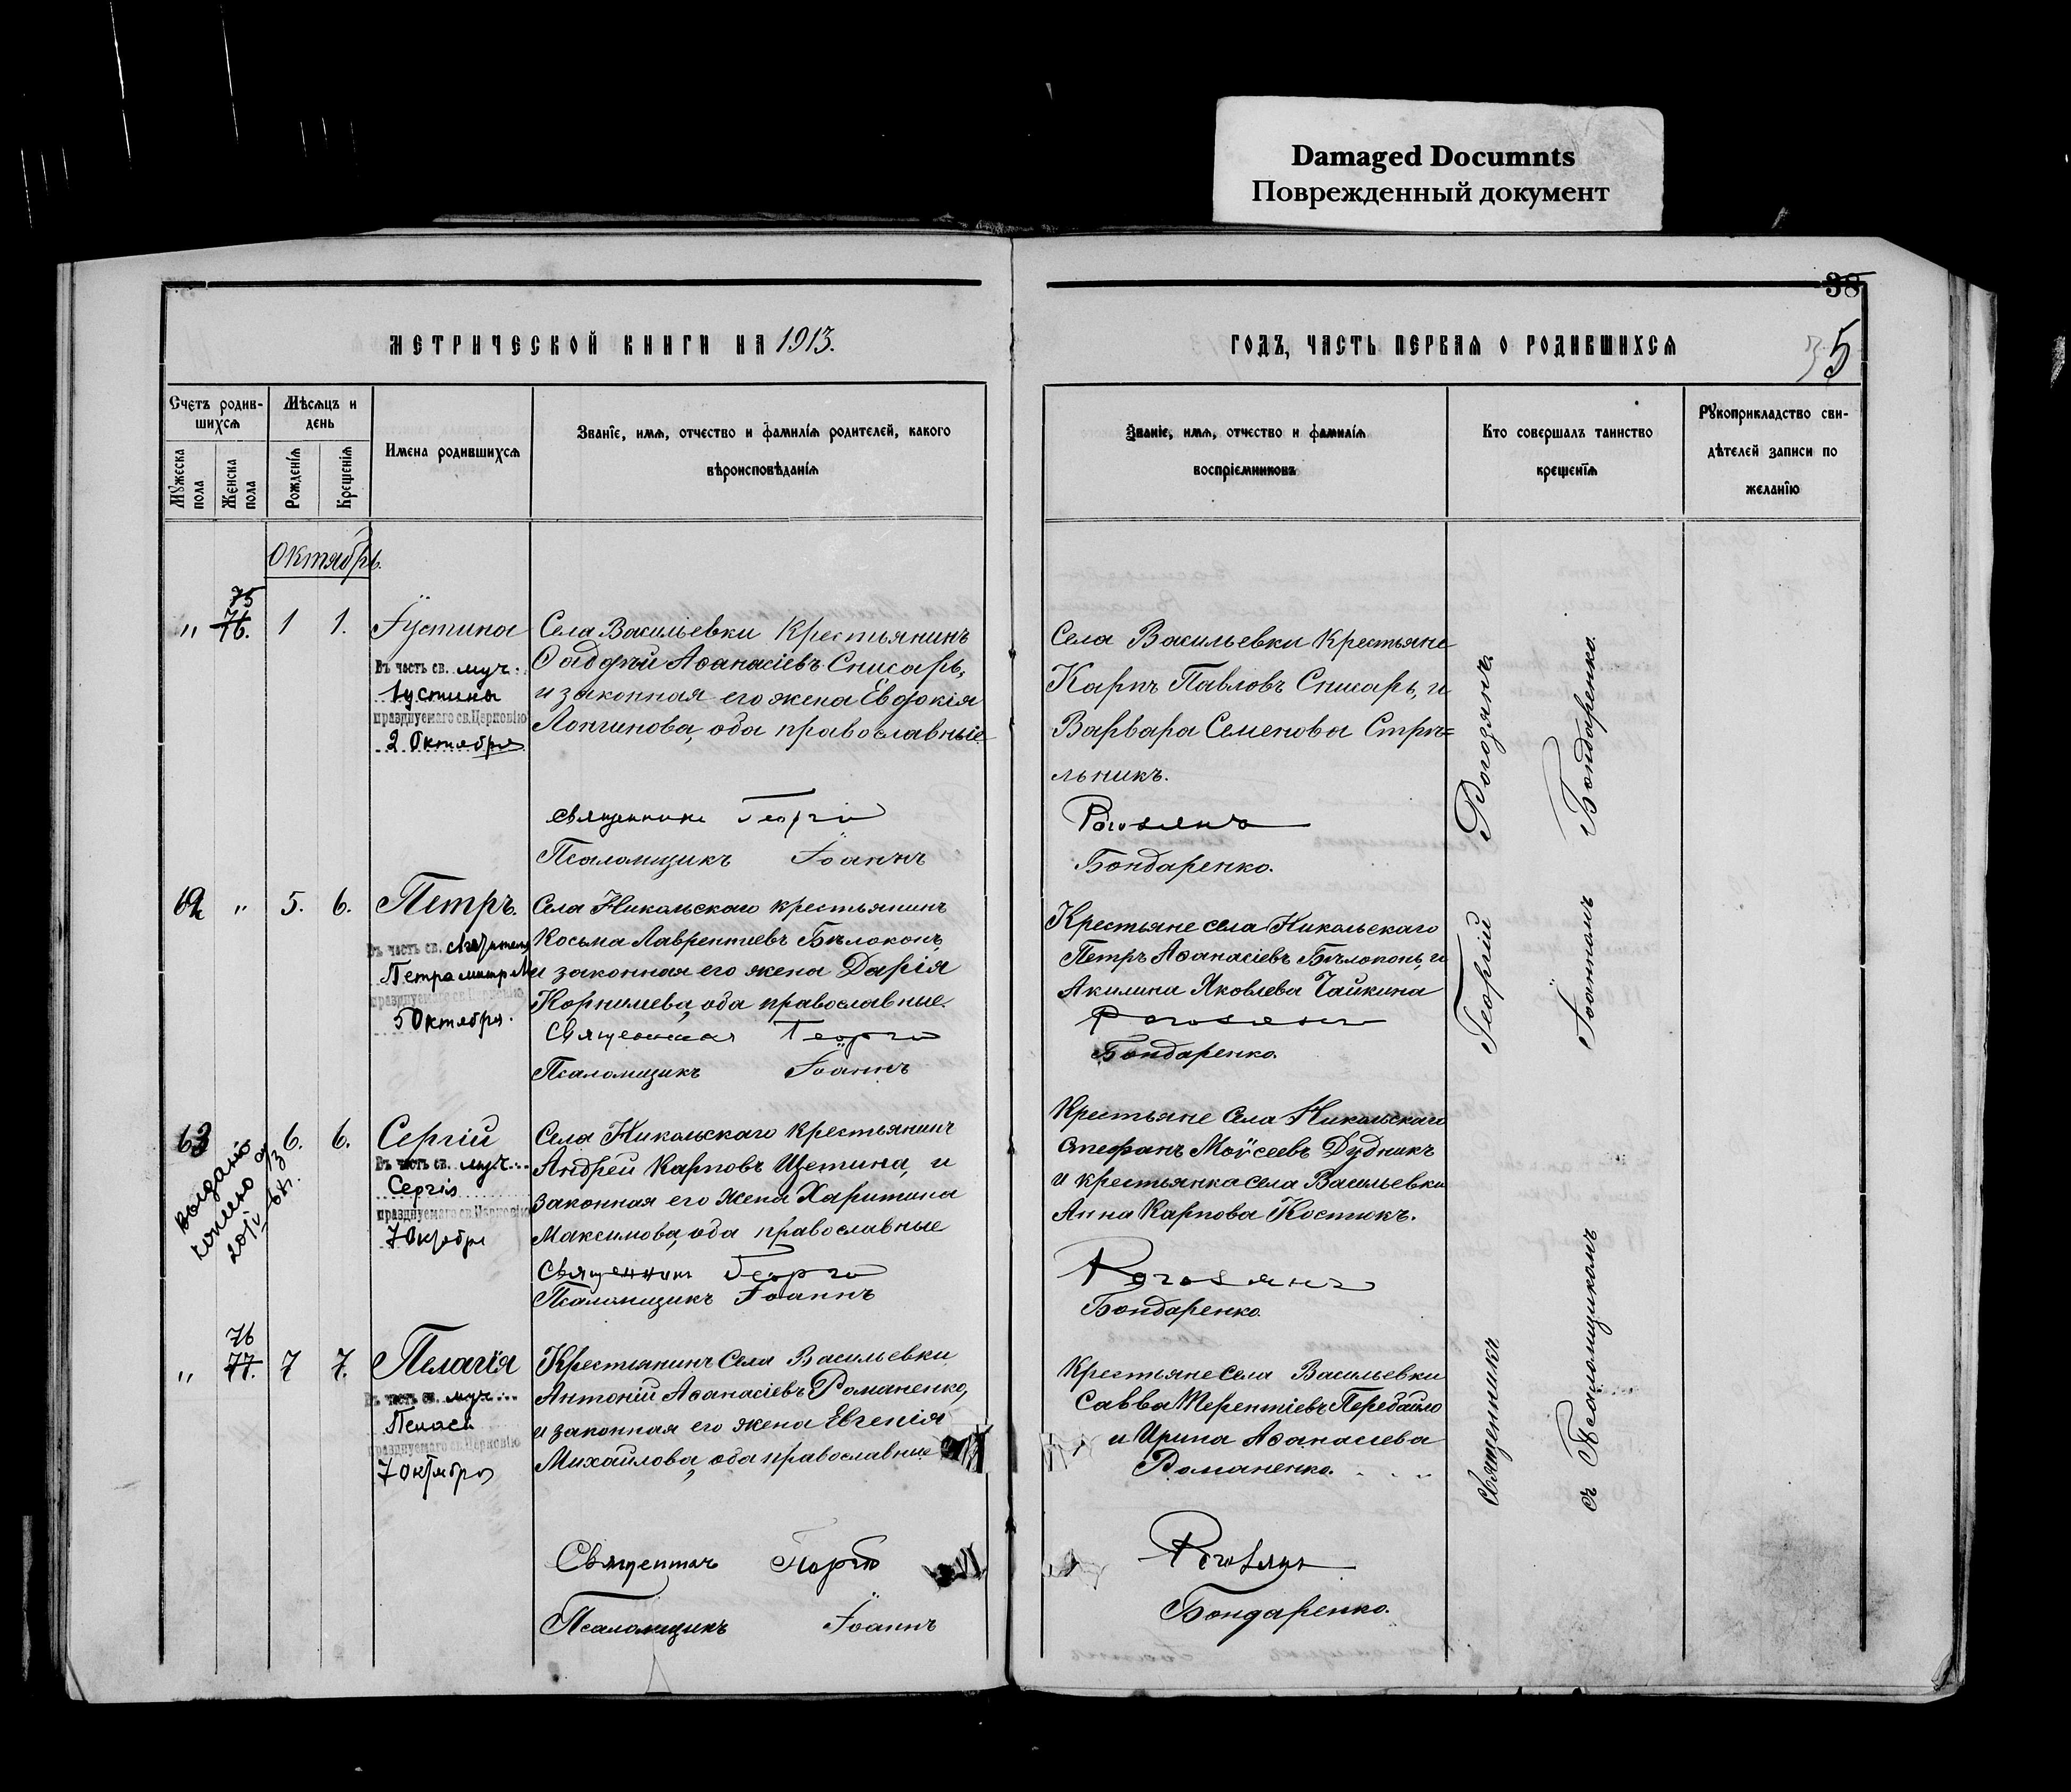 Damaged Documnts
Поврежденный документ
38
МЕТРИЧЕСКОЙ КНИГИ НА 1913.
ГОДЪ, ЧАСТЬ ПЕРВАЯ О РОДИВШИХСЯ
5
Счетъ родив-
шихся
Мужеска пола
Женска пола
Мѣсяцъ и
день
Рожденія
Крещенія
Имена родившихся
Званіе, имя, отчество и фамилія родителей, какого
вѣроисповѣданія
Званіе, имя, отчество и фамилія
воспріемниковъ
Кто совершалъ таинство
крещенія
Рукоприкладство сви-
дѣтелей записи по
желанію
Октябрь.
75
" 76. 1 1. Іустина
Въ честь св. муч.
Іустины
празднуемаго св. Церковію
2 Октября
Села Васильевки Крестьянинъ
Аѳанасіевъ Снисарь,
и законная его жена Евдокія
Лонгинова, оба православные
Священникъ Георгій
Псаломщикъ Іоаннъ
Села Васильевки Крестьяне
Карпъ Павловъ Снисарь, и
Варвара Семенова Стрѣ=
льникъ.
Рогозянъ
Бондаренко.
62 " 5. 6. Петръ.
Въ честь св. Святителя
Петра митр. М
празднуемаго св. Церковію
5 Октября.
Села Никольскаго крестьянинъ
Косьма Лаврентиевъ Бѣлоконь
и законная его жена Дарія
Корнилиева, оба православные.
Священникъ Георгій
Псаломщикъ Іоаннъ
Крестьяне села Никольскаго
Петръ Аѳанасіевъ Бѣлоконь, и
Акилина Яковлева Чайкина
Рогозянъ
Бондаренко.
63 6. 6. Сергій
Въ честь св. муч.
Сергія
празднуемаго св. Церковію
7 Октября
Села Никольскаго крестьянинъ
Андрей Карповъ Щетина, и
законная его жена Харитина
Максимова, оба православные
Священникъ Георгій
Псаломщикъ Іоаннъ
Крестьяне Села Никольскаго
Стефанъ Моѵсеевъ Дудникъ
и крестьянка села Васильевки
Анна Карпова Костюкъ.
Рогозянъ
Бондаренко.
76
" 77. 7 7. Пелагія
Въ честь св. муч.
Пелагеи
празднуемаго св. Церковію
7 Октября
Крестьянинъ Села Васильевки
Антоній Аѳанасіевъ Романенко,
и законная его жена Евгенія
Михайлова, оба православные
Священникъ Георгій
Псаломщикъ Іоаннъ
Крестьяне Села Васильевки
Савва Терентіевъ Перебайло
и Ирина Аѳанасиева
Романенко.
Рогозянъ
Бондаренко.
Священникъ Георгій Рогозянъ.
съ Псаломщикомъ Іоанномъ Бондаренко.